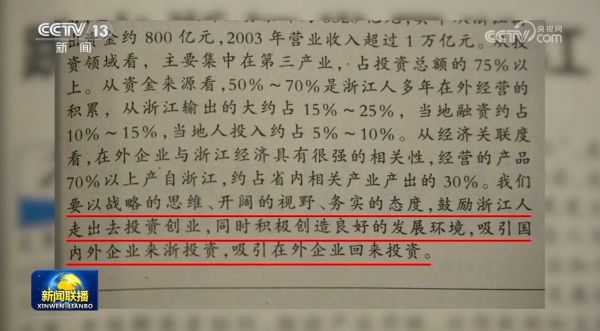 CCTV 13
新闻
央视网
CCTV.com
资金约800亿元，2003年营业收入超过1万亿元。从投
资领域看，主要集中在第三产业，占投资总额的75%以
上。从资金来源看，50%～70%是浙江人多年在外经营的
积累，从浙江输出的大约占15%～25%，当地融资约占
10%～15%，当地人投入约占5%～10%。从经济关联度
看，在外企业与浙江经济具有很强的相关性，经营的产品
70%以上产自浙江，约占省内相关产业产出的30%。我们
要以战略的思维、开阔的视野、务实的态度，鼓励浙江人
走出去投资创业，同时积极创造良好的发展环境，吸引国
内外企业来浙投资，吸引在外企业回来投资。
新闻联播
XINWEN LIANBO